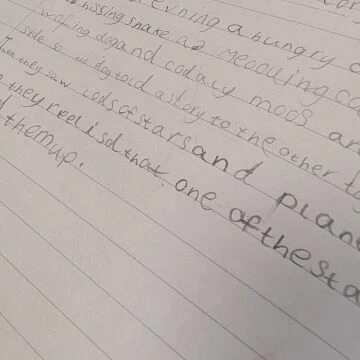 evning a hungry
hissing snake a meoowing
wofing dog and cod a cly moos an
side so the dog told a story to the other
Then they saw lods of stars and plan
they reelisd that one of the sta
them up.